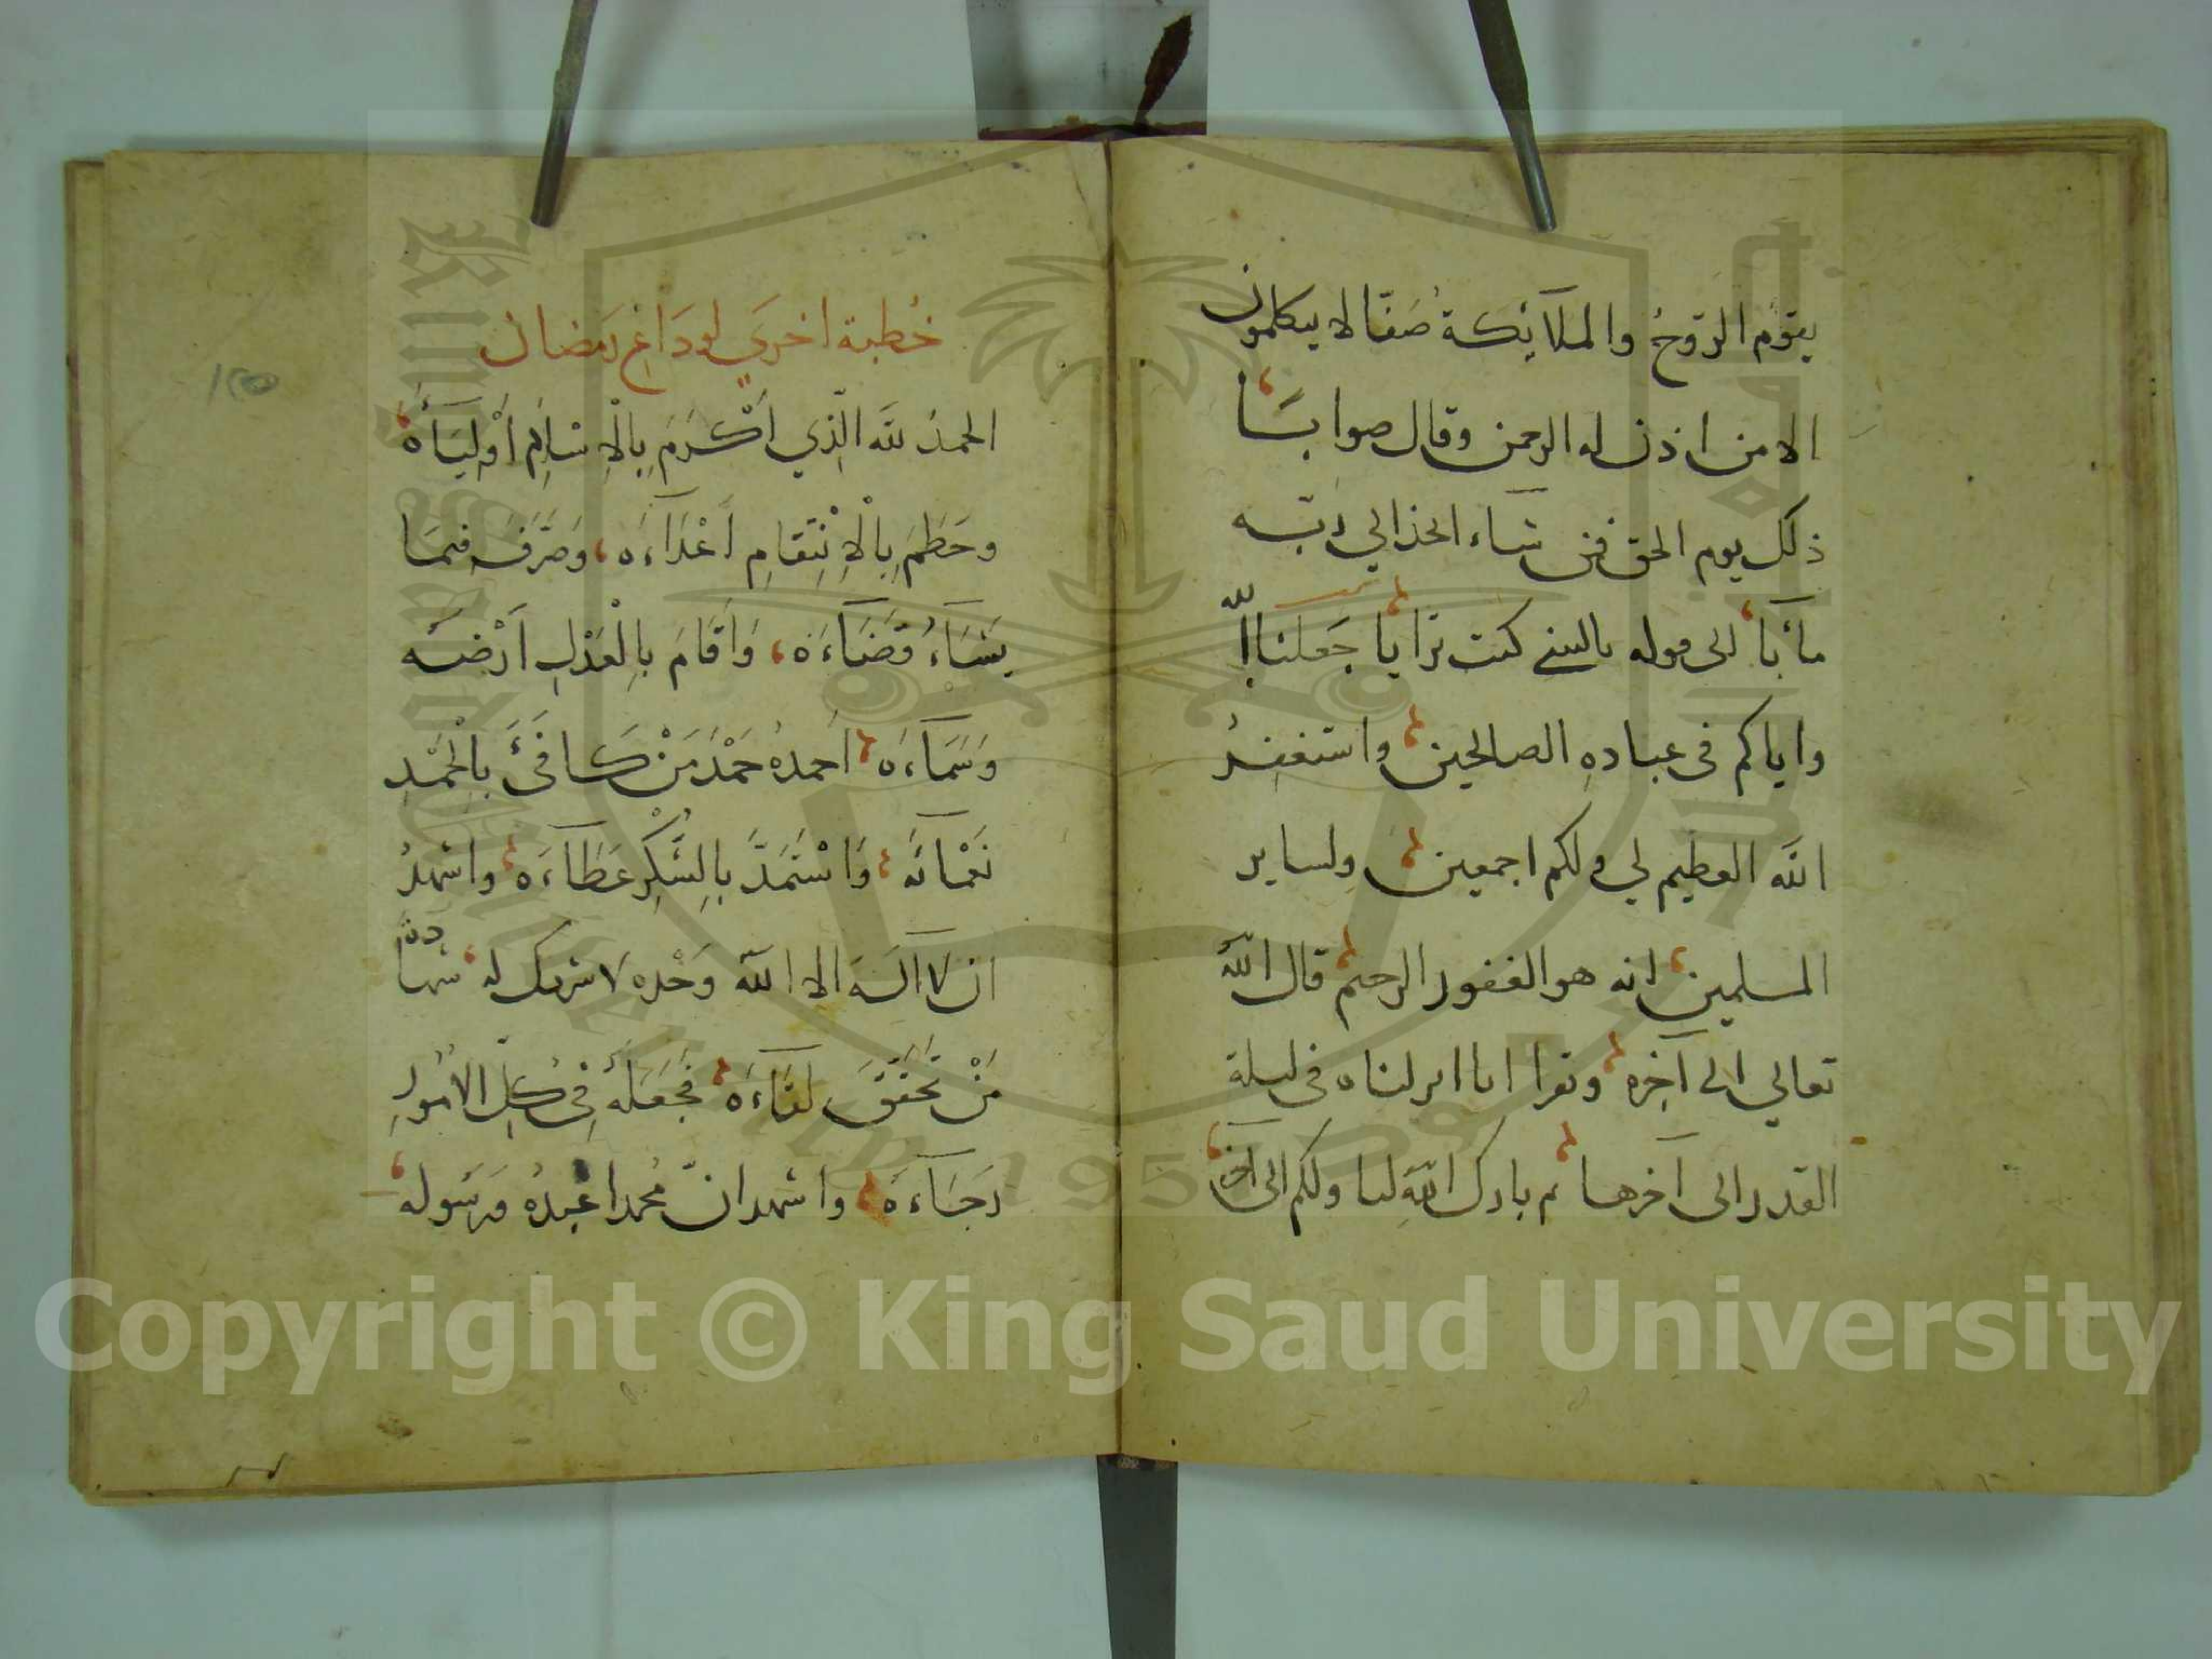 يقوم الروحُ والملآئكة صَفّا لا يتكلمون
الا من اذن له الرحمن وقال صوابًا
ذلك يوم الحق فمن شآء اتخذ الي ربّه
مأبًا الى قوله يا ليتني كنت ترابا جَعلنا الله
واياكم فى عبادهِ الصالحين واستغفِرُ
الله العظيم لي ولكم اجمعين ولساير
المسلمين انه هو الغفور الرحيم قال اللّٰه
تعالي الى آخره وتقرا انا انزلناه فى ليلة
القدر الى آخرها ثم بارك اللّٰه لنا ولكم الى آخره
خُطبة اخري لودَاع رمضان
الحمدُ لله الّذي اَكْرَمَ بِالْاِسْلَامِ اَوْلِيَآءَهُ
وحَطَمَ بِالْاِنْتِقَامِ اَعْدَآءَه، وصَرَّفَ فيمَا
يَشَآءُ قَضَآءَهُ، وَاَقَامَ بِالْعَدْلِ اَرْضَه
وَسَمَآءَه اَحمدهُ حَمْدَ مَنْ كَافَئَ بِالْحَمْدِ
نَعْمَآئَه وَاسْتَمَدَّ بِالشُّكْرِ عَطَآءَه واشهدُ
ان لا آلَه الا اللّٰه وَحْده لا شريك له شهادة
مَنْ تَحَقَّقَ لِقَآءَه فَجَعَلَهُ فِى كُلِّ الامُورِ
رَجَآءَه واشهد انّ محُمدا عَبدهُ ورَسوله
١٢٥
King Saud University
1957
Copyright © King Saud University